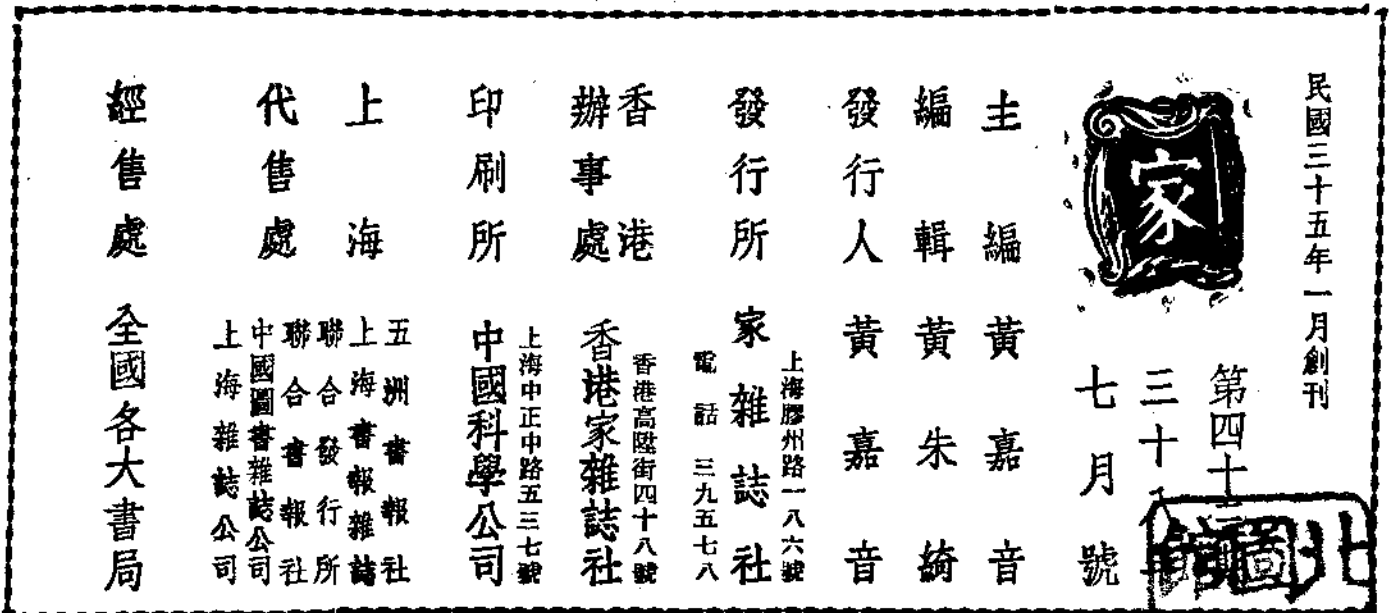 民國三十五年一月創刊
家
第四十
三十
七月號
主編 黃嘉音
編輯 黃朱綺
發行人 黃嘉音
發行所 家雜誌社
上海膠州路一八六號
電話 三九五七八
香港辦事處 香港家雜誌社
香港高陞街四十八號
印刷所 中國科學公司
上海中正中路五三七號
上海代售處
五洲書報社
上海書報雜誌
聯合發行所
聯合書報社
中國圖書雜誌公司
上海雜誌公司
經售處 全國各大書局
北圖